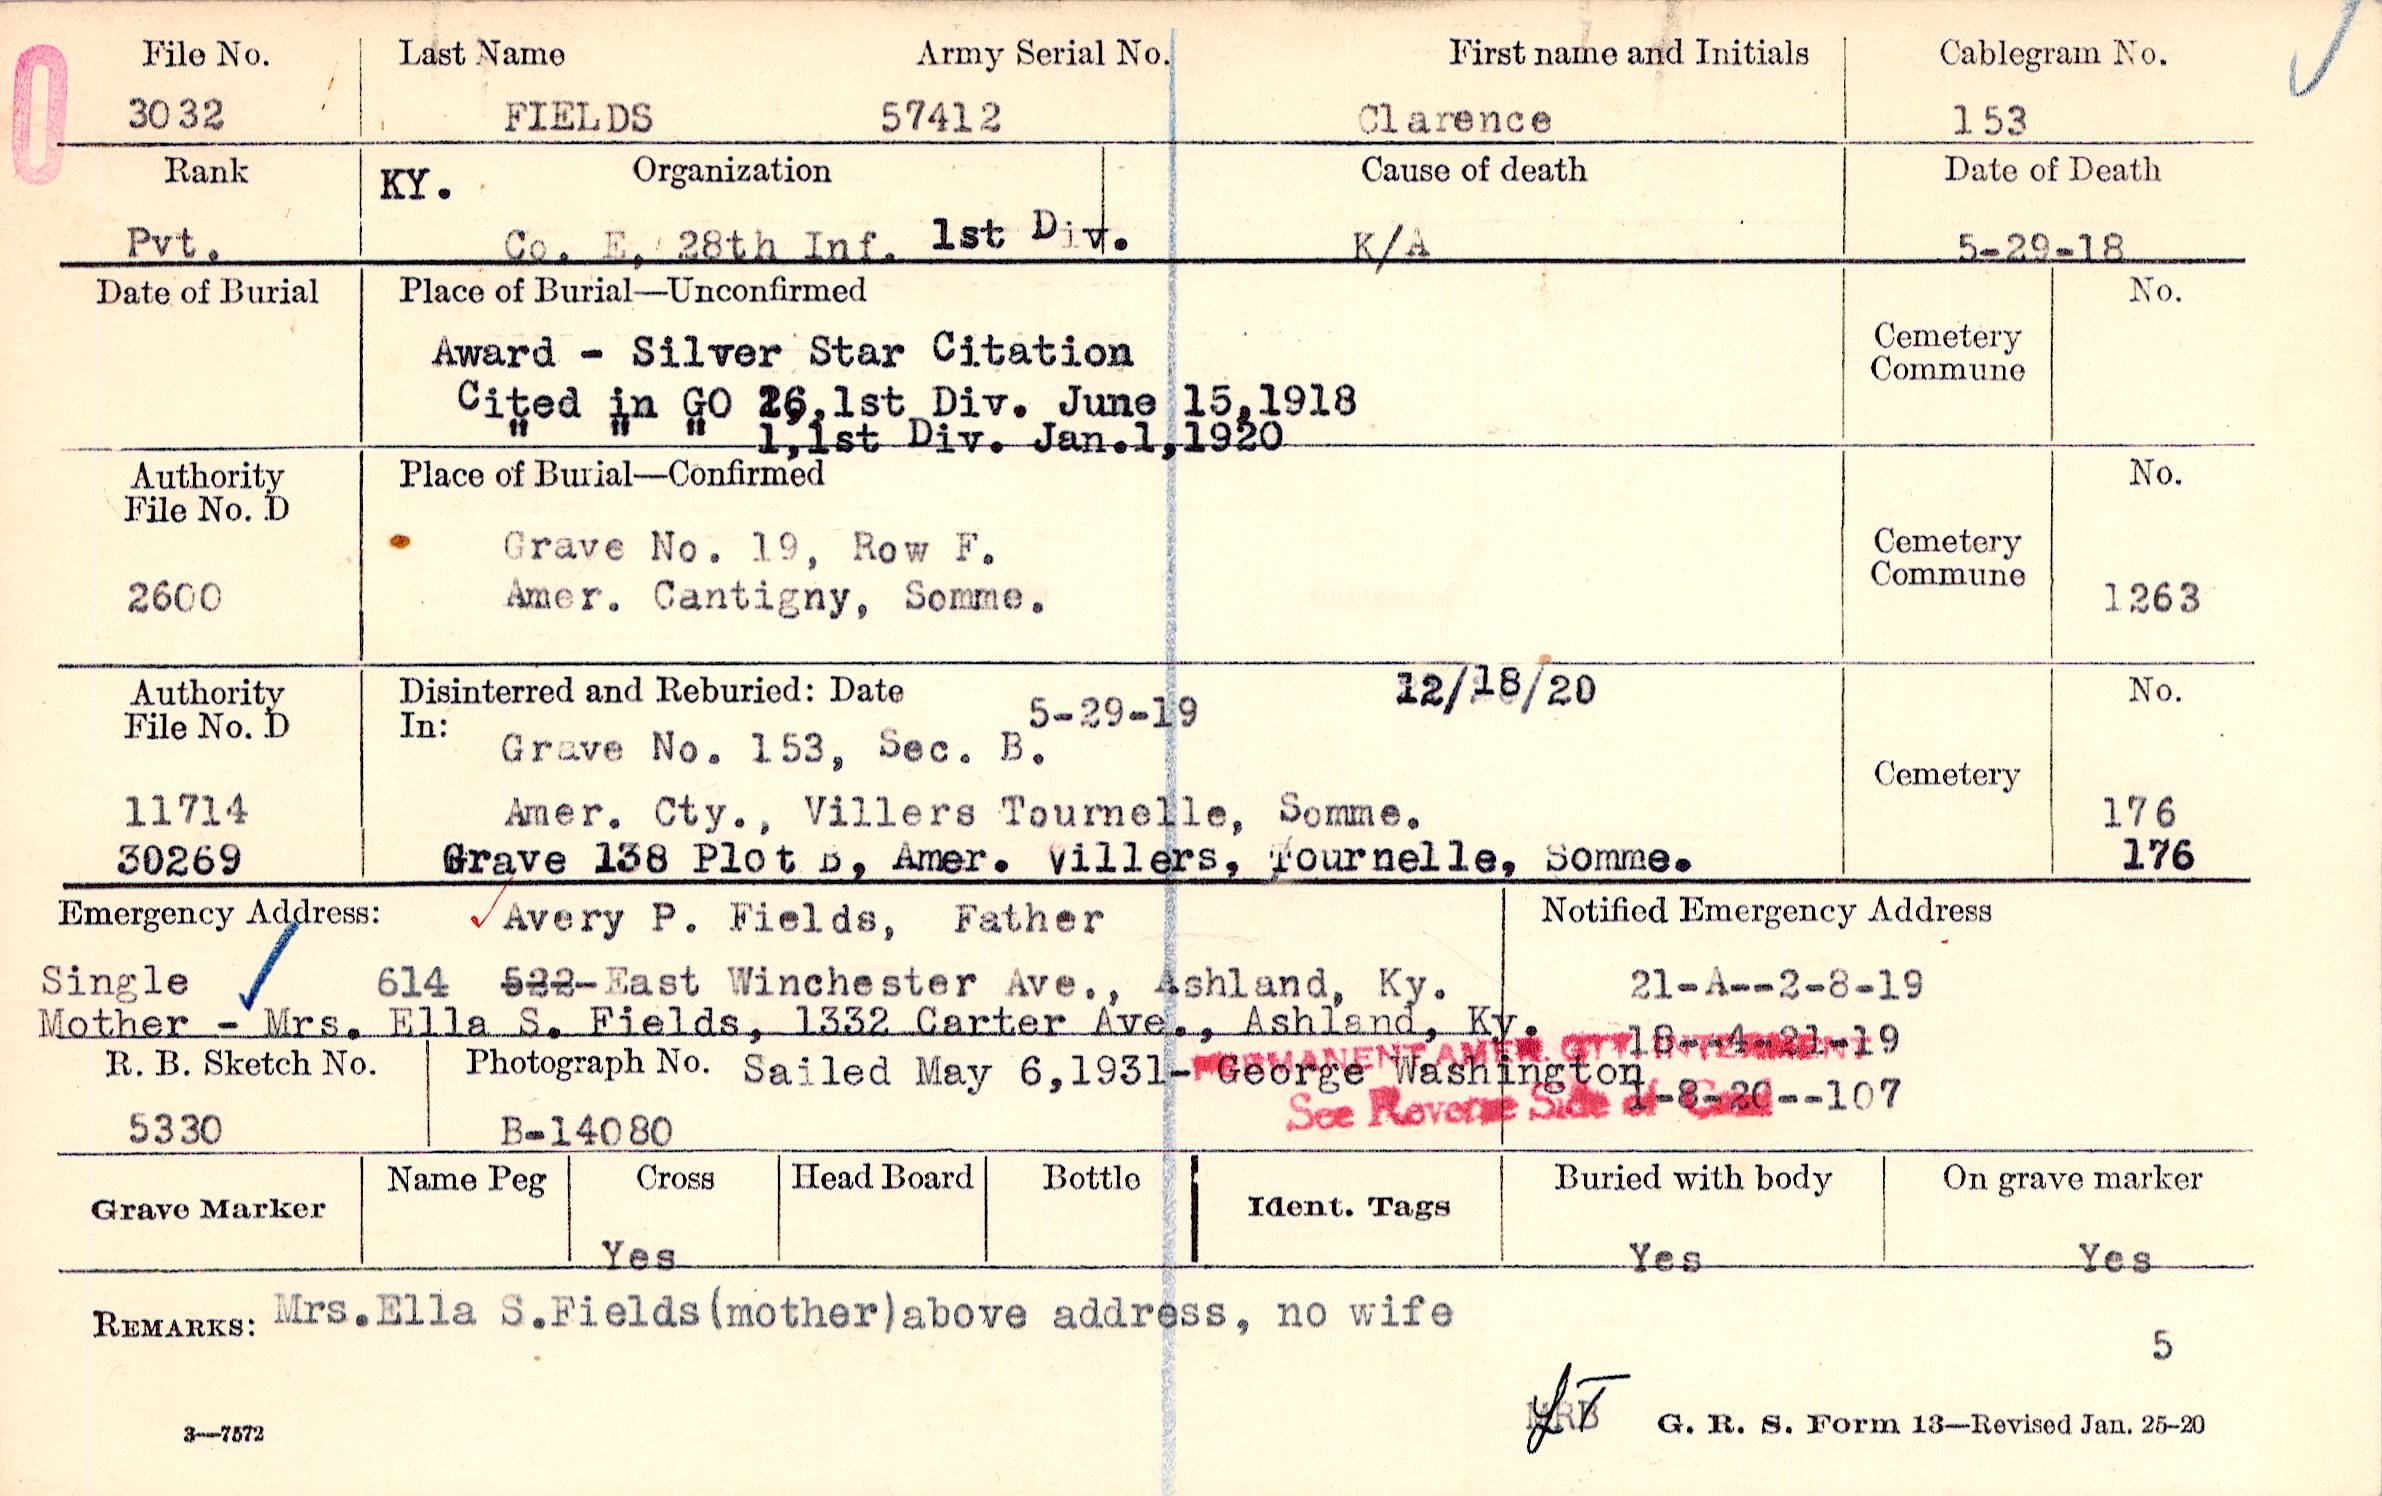 File No. Last Name Army Serial No. First name and Initials Cablegram No.
3032 FIELDS 57412 Clarence 153
Rank KY. Organization Cause of death Date of Death
Pvt. Co. E, 28th Inf. 1st Div. K/A 5-29-18
Date of Burial Place of Burial—Unconfirmed No.
Cemetery
Commune
Award - Silver Star Citation
Cited in GO 26,1st Div. June 15,1918
" " " 1,1st Div. Jan.1,1920
Authority Place of Burial—Confirmed No.
File No. D
Cemetery
Commune
Grave No. 19, Row F.
2600 Amer. Cantigny, Somme. 1263
Authority Disinterred and Reburied: Date 5-29-19 12/18/20 No.
File No. D In:
Grave No. 153, Sec. B.
Cemetery
11714 Amer. Cty., Villers Tournelle, Somme. 176
30269 Grave 138 Plot B, Amer. Villers, Tournelle, Somme. 176
Emergency Address: Avery P. Fields, Father Notified Emergency Address
Single 614 522-East Winchester Ave., Ashland, Ky. 21-A--2-8-19
Mother - Mrs. Ella S. Fields, 1332 Carter Ave., Ashland, Ky.
18--4-21-19
PERMANENT AMER. CTY. INTERMENT
R. B. Sketch No. Photograph No. Sailed May 6,1931- George Washington
1-8-20--107
See Reverse Side of Card
5330 B-14080
Grave Marker Name Peg Cross Head Board Bottle Ident. Tags Buried with body On grave marker
Yes Yes Yes
REMARKS: Mrs.Ella S.Fields(mother)above address, no wife
5
3—7572 MRB G. R. S. Form 13—Revised Jan. 25-20